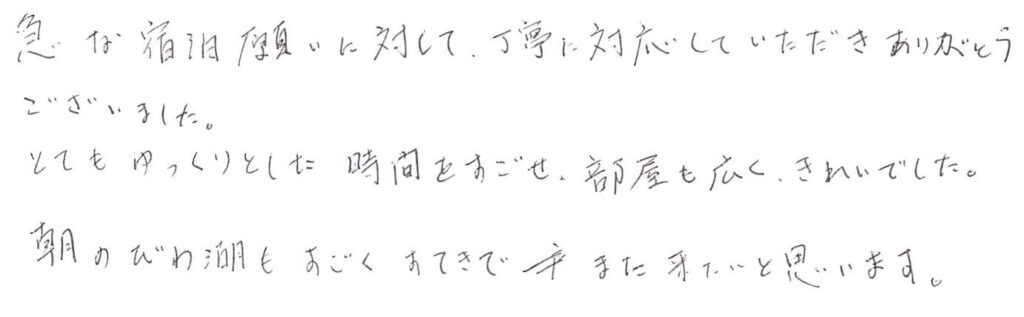 急な宿泊願いに対して、丁寧に対応していただきありがとう
ございました。
とてもゆっくりとした時間をすごせ、部屋も広く、きれいでした。
朝のびわ湖もすごくすてきで また来たいと思います。